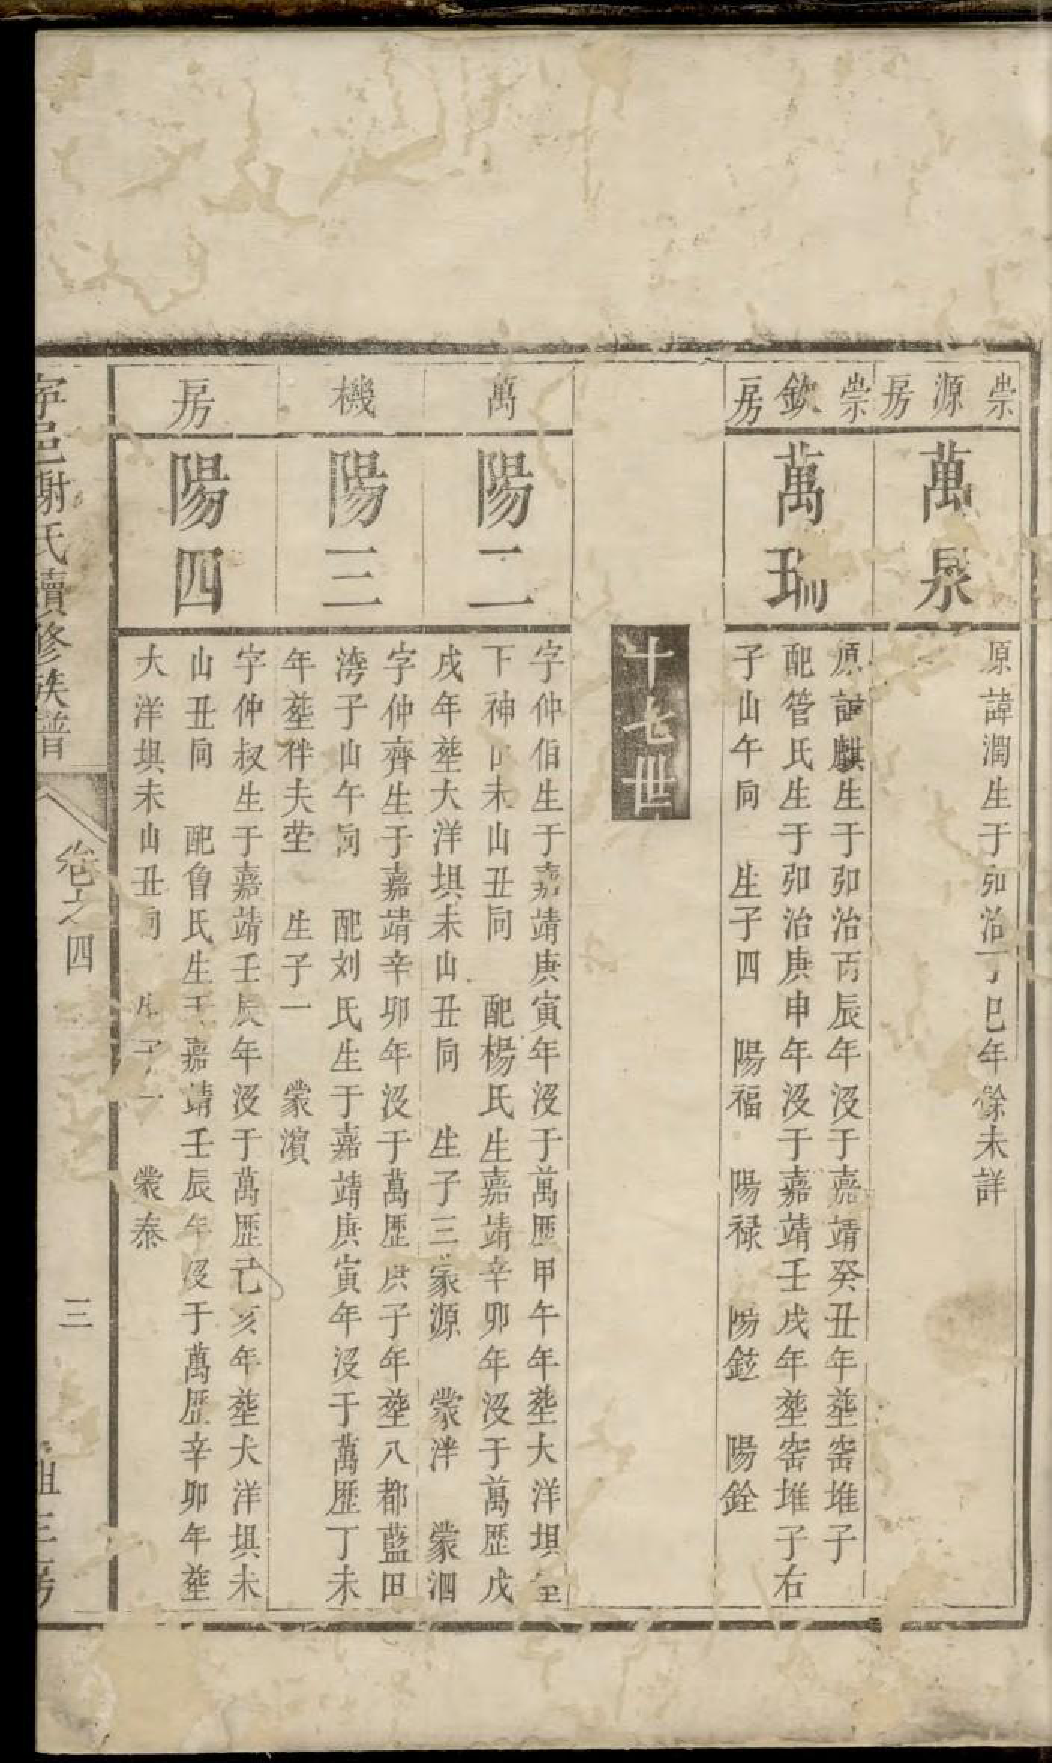 崇源房
萬泉
原諱潤生于卯治丁巳年餘未詳
崇欽房
萬珊
原諱麒生于卯治丙辰年沒于嘉靖癸丑年塟窑堆子
配管氏生于卯治庚申年沒于嘉靖壬戌年塟窑堆子右
子山午向 生子四 陽福 陽禄 陽鉉 陽銓
十七世
萬機房
陽二
字仲伯生于嘉靖庚寅年沒于萬歷甲午年塟大洋垻
下神山未山丑向 配楊氏生嘉靖辛卯年沒于萬歷戊
戌年塟大洋垻未山丑向 生子三 蒙源 蒙泮 蒙泗
陽三
字仲齊生于嘉靖辛卯年沒于萬歷庚子年塟八都藍田
湾子山午向 配刘氏生于嘉靖庚寅年沒于萬歷丁未
年塟祥夫塋 生子一 蒙濵
陽四
字仲叔生于嘉靖壬辰年沒于萬歷己亥年塟大洋垻未
山丑向 配魯氏生于嘉靖壬辰年沒于萬歷辛卯年塟
大洋垻未山丑向 生子一 蒙泰
邑謝氏續修族譜
卷之四
三